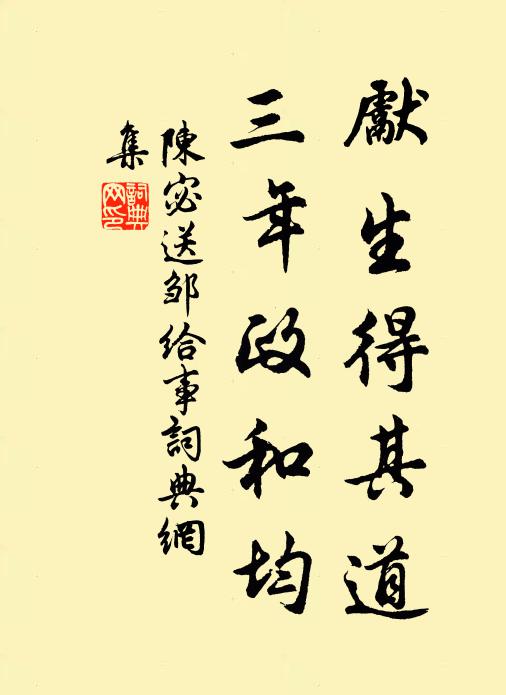 獻生得其道
三年政和均
陳宓送邹给事詞典網
集
詞典
网印